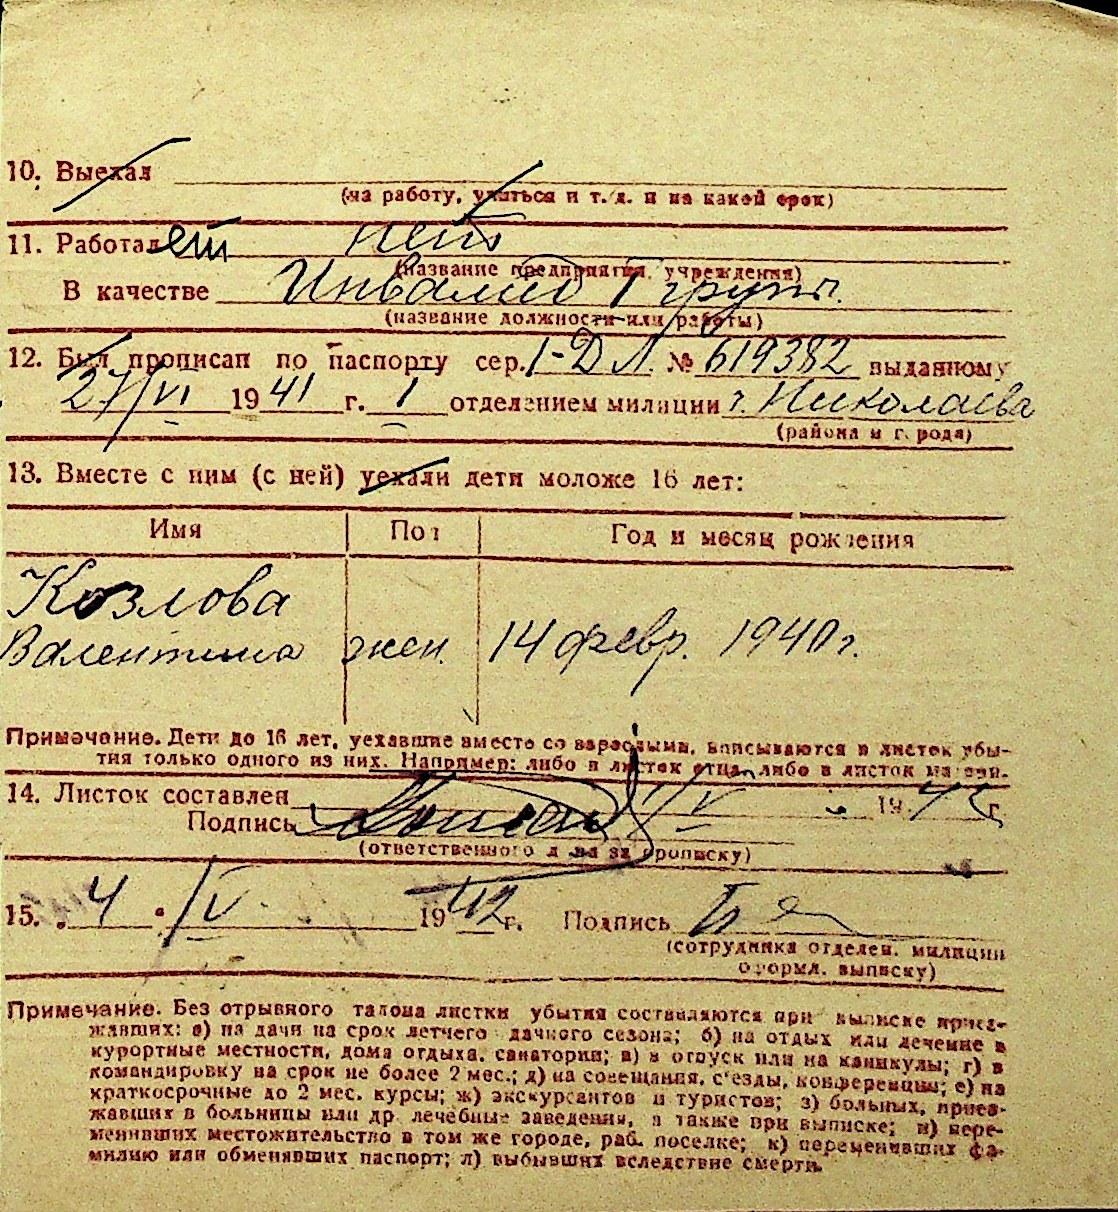 10. Выехал
(на работу, учиться и т. д. и на какой срок)
11. Работает нет
(название предприятия, учреждения)
В качестве Инвалид I групы.
(название должности или работы)
12. Был прописан по паспорту сер. I-ДЛ. № 619382 выданному
27/VI 1941 г. I отделением милиции г. Николаева
(района и города)
13. Вместе с ним (с ней) уехали дети моложе 16 лет:
Имя Пол Год и месяц рождения
Козлова
Валентина жен. 14 февр. 1940 г.
Примечание. Дети до 16 лет, уехавшие вместе со взрослыми, вписываются в листок убы-
тия только одного из них. Например: либо в листок отца, либо в листок матери.
14. Листок составлен 194 г.
Подпись
(ответственного лица за прописку)
15. 4 IV 1942 г. Подпись
(сотрудника отделен. милиции
оформл. выписку)
Примечание. Без отрывного талона листки убытия составляются при выписке приез-
жавших: а) на дачи на срок летнего дачного сезона; б) на отдых или лечение в
курортные местности, дома отдыха, санатории; в) в отпуск или на каникулы; г) в
командировку на срок не более 2 мес.; д) на совещания, с'езды, конференции; е) на
краткосрочные до 2 мес. курсы; ж) экскурсантов и туристов; з) больных, приез-
жавших в больницы или др. лечебные заведения, а также при выписке; и) пере-
менивших местожительство в том же городе, раб. поселке; к) переменивших фа-
милию или обменявших паспорт; л) выбывших вследствие смерти.